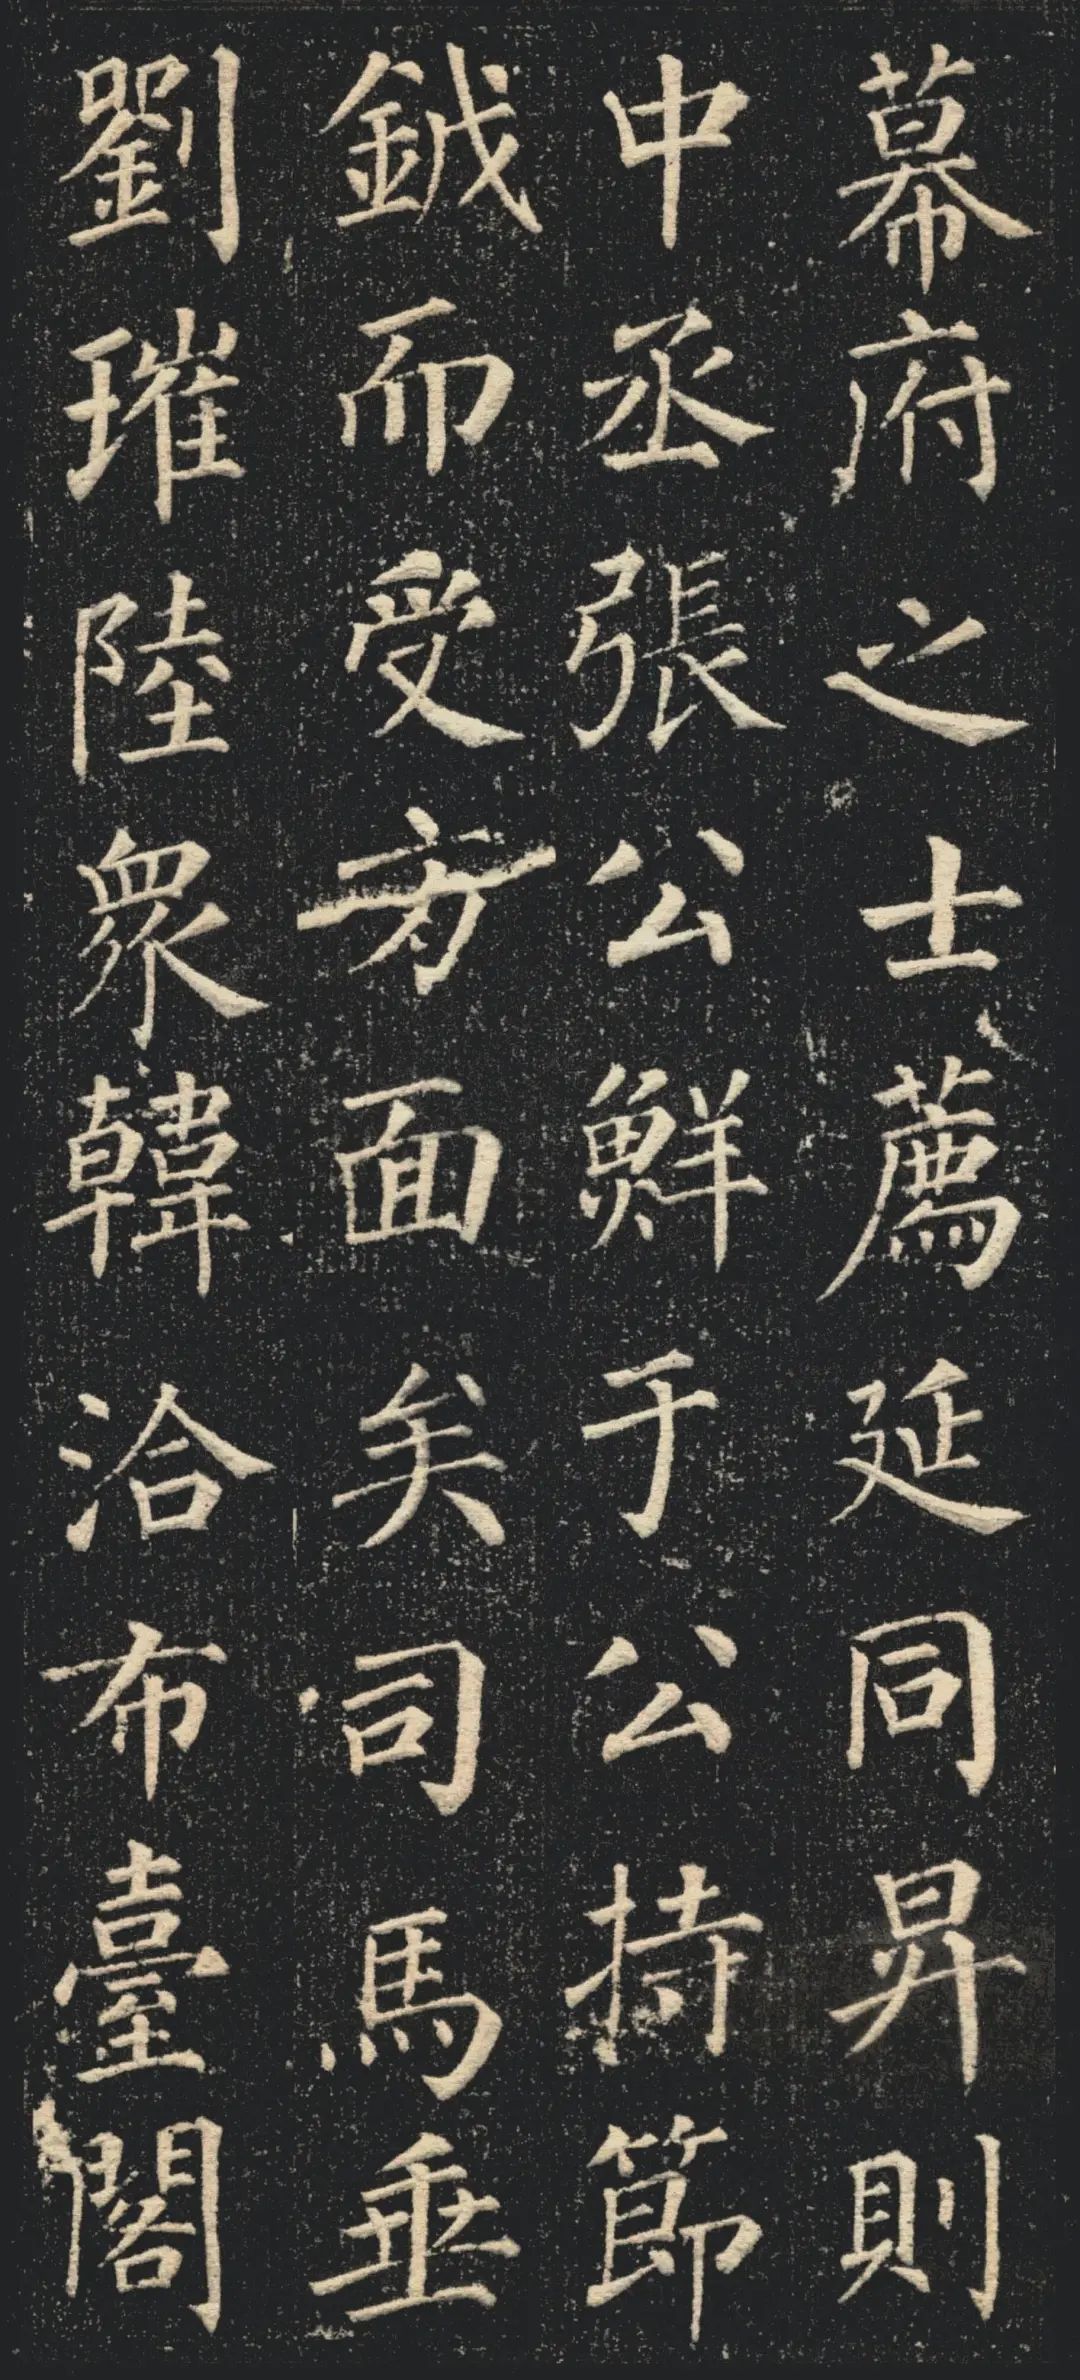 幕府之士薦延同昇則
中丞張公鮮于公持節
鉞而受方面矣司馬垂
劉璀陸衆韓洽布臺閣